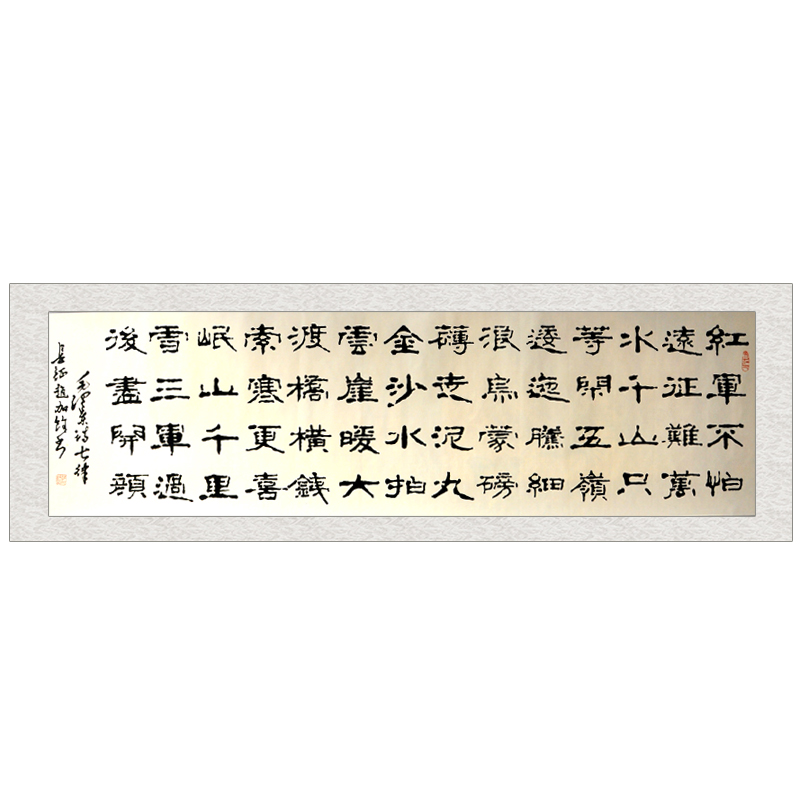 紅軍不怕
遠征難萬
水千山只
等閑五嶺
逶迤騰細
浪烏蒙磅
礴走泥丸
金沙水拍
雲崖暖大
渡橋橫鐵
索寒更喜
岷山千里
雪三軍過
後盡開顏
毛澤東詩七律
長征趙加書